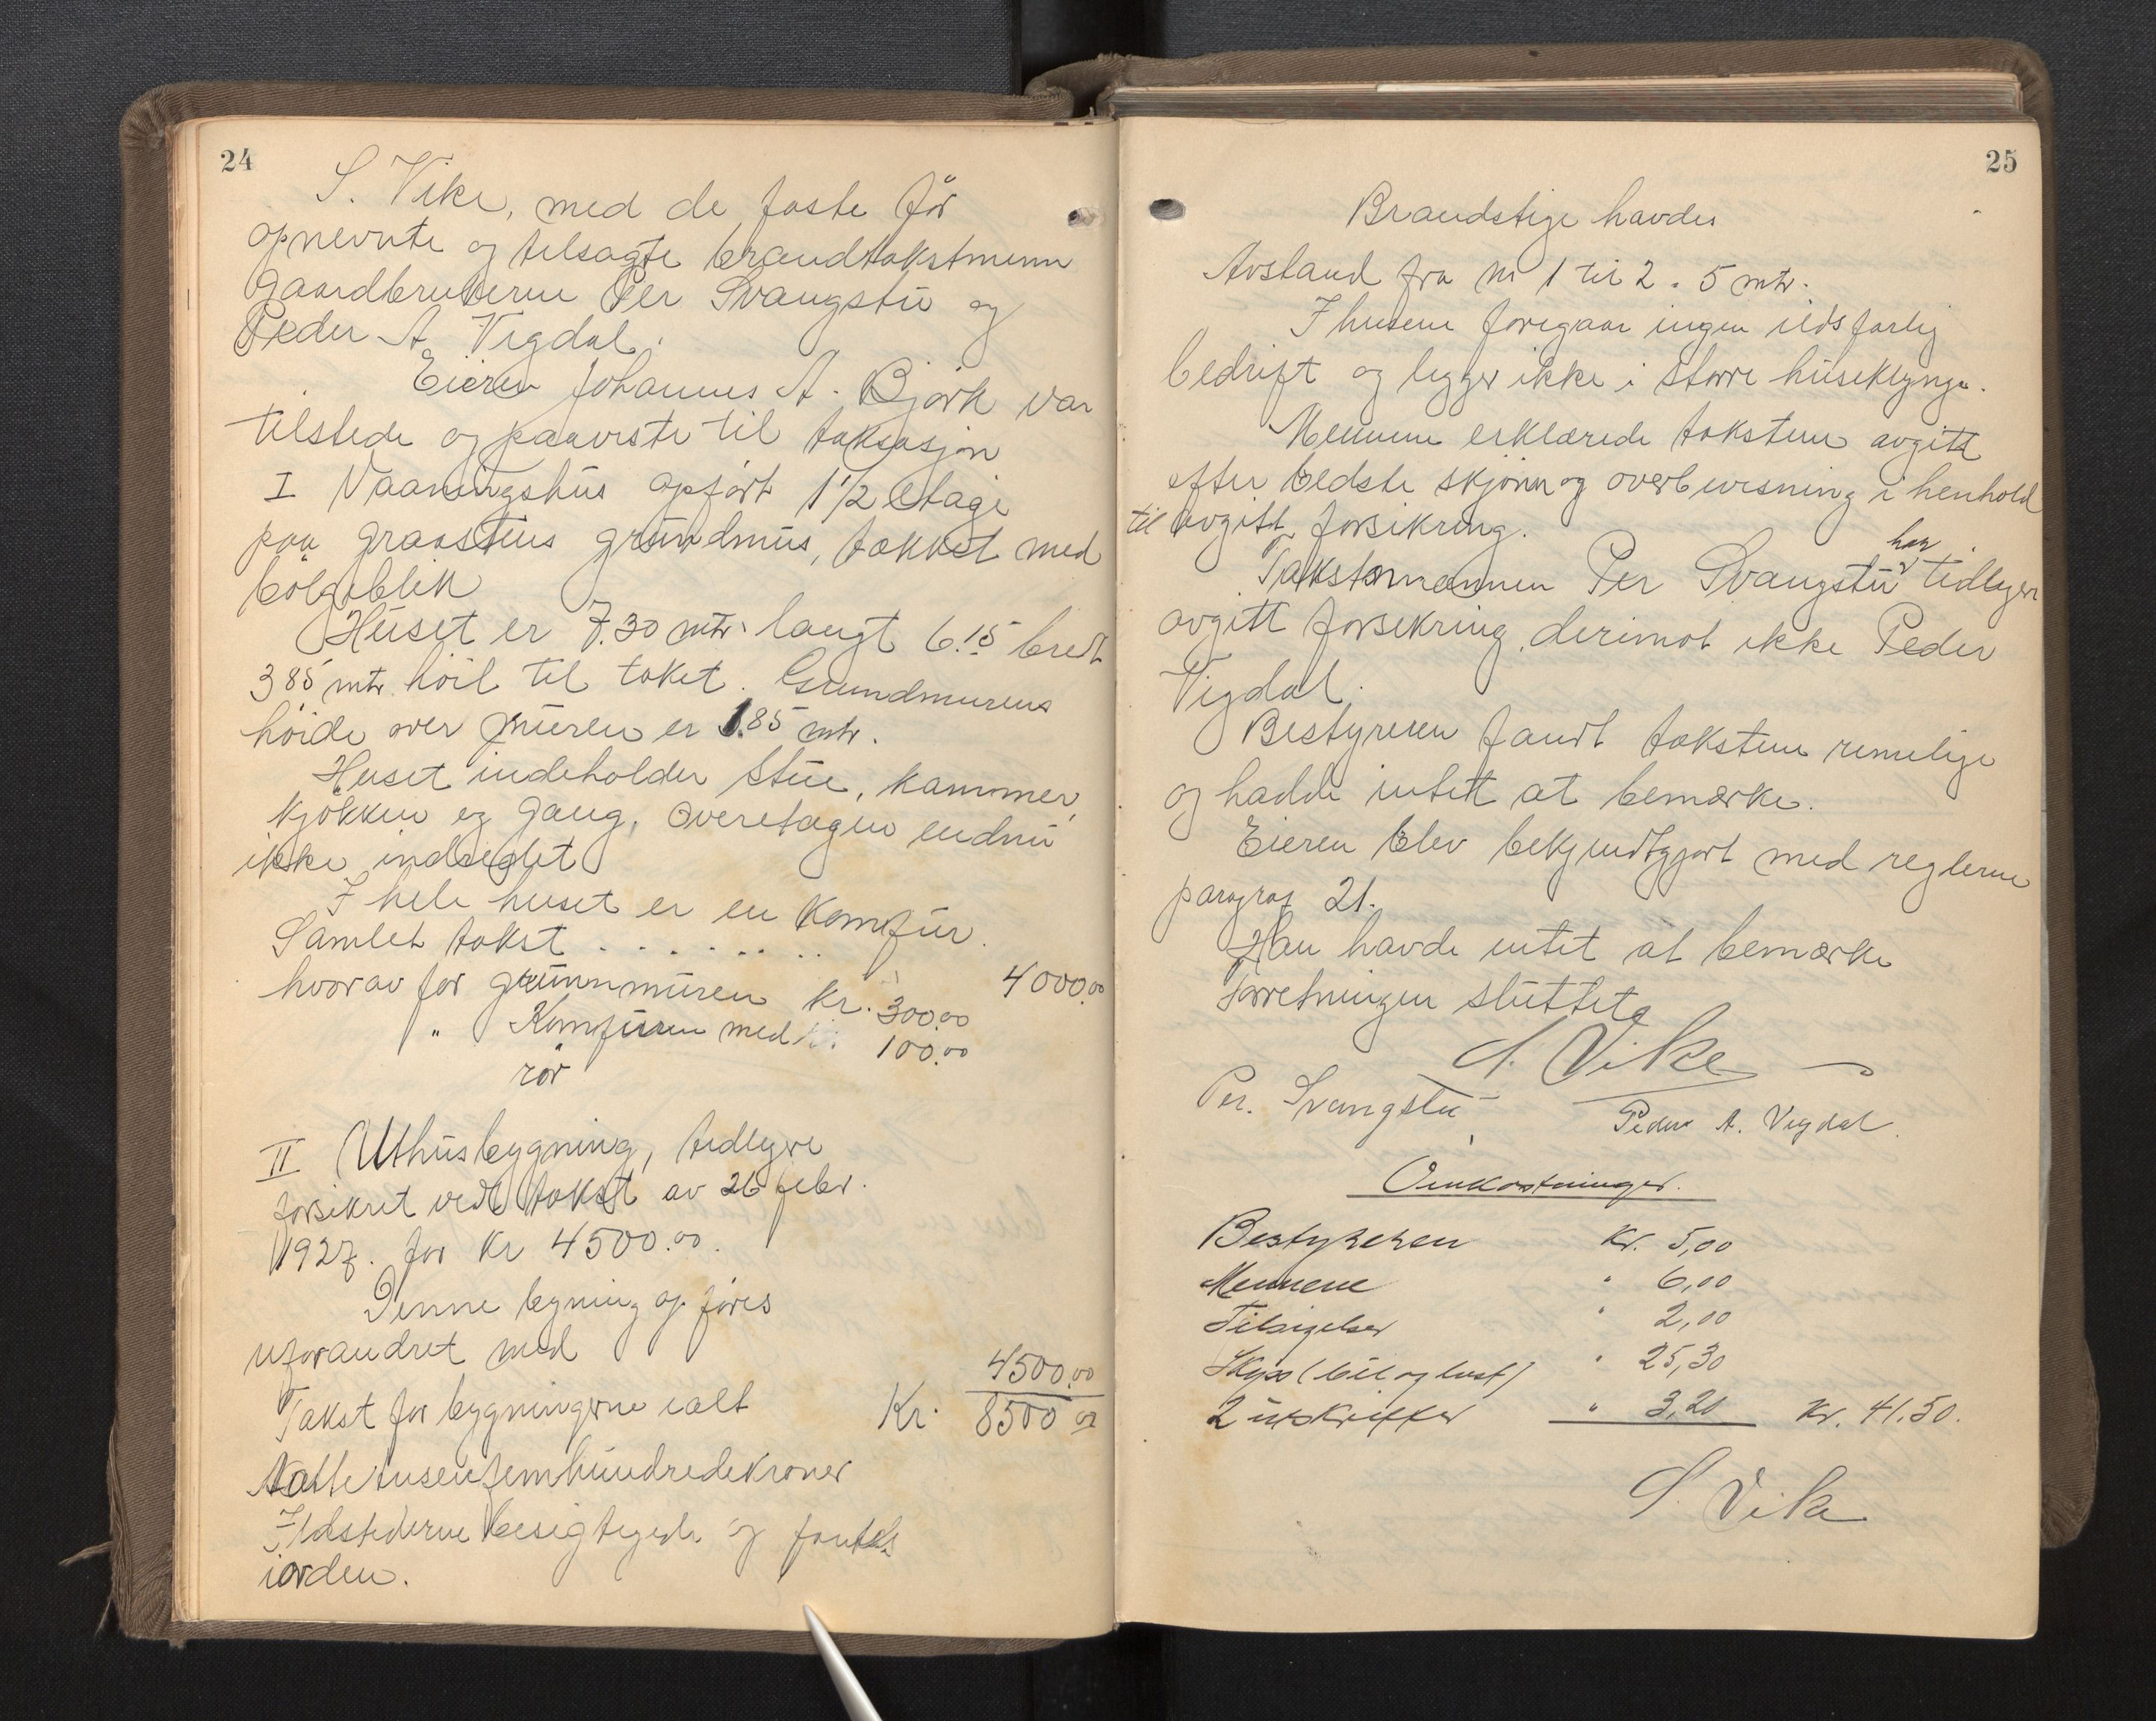 24
S. Vike, med de faste för
opnevnte og tilsagte brandtakstmenn
gaardbrukerne Per Svangstu og
Peder A. Vigdal.
Eieren Johannes A. Bjørk var
tilstede og paaviste til taksasjon
I Vaaningshus opført 1 1/2 etage
paa graastens grundmur, takket med
bölgeblik
Huset er 7.30 mtr. langt 6.15 bredt
3 85 mtr. höit til taket. Grundmurens
höide over muren er 1.85 mtr.
Huset indeholder stue, kammer,
kjökken og gang, overetagen endnu
ikke indredet
I hele huset er en Komfur.
Samlet takst . . . . . . . .
hvorav for grunnmuren kr. 300.00 4000.00
" Komfuren med 100.00
rör
II Uthusbygning, tidligere
forsikret ved takst av 26 febr.
1927. for kr 4500.00.
Denne bygning opføres
uforandret med 4500.00
Takst for bygningerne ialt Kr. 8500 00
Aattetusenfemhundredekroner
Ildstederne besigtigede og fantes
iorden.
25
Brandstige havdes
Avstand fra nr 1 til 2 . 5 mtr.
I husene foregaar ingen ildsfarlig
bedrift og ligger ikke i større huseklynge.
Mennene erklærede taksten avgitt
efter bedste skjønn og overbevisning i henhold
til avgitt forsikring.
Takstmannen Per Svangstu har tidligere
avgitt forsikring, derimot ikke Peder
Vigdal.
Bestyreren fandt taksten rimelige
og hadde intet at bemærke.
Eieren blev bekjendtgjort med reglerne
paragraf 21.
Han havde intet at bemærke
Forretningen sluttet
S. Vike
Per. Svangstu Peder A. Vigdal.
Omkostninger.
Bestyreren Kr. 5,00
Mennene " 6,00
Tilsigelser " 2,00
Skyss (bil og hest) " 25,30
2 utskrifter " 3,20 Kr. 41.50.
S. Vike